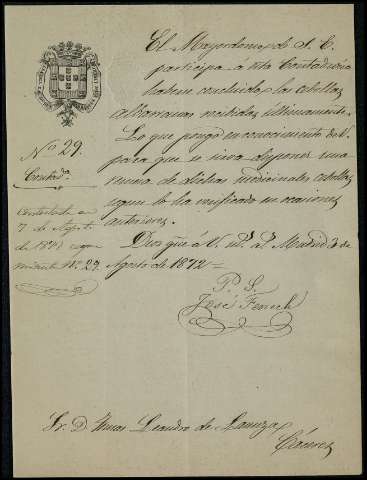 El Mayordomo de S. E.
participa á esta Contaduria
haberse concluido las cebollas
albarranas recibidas últimamente.
Lo que pongo en conocimiento de V.
para que se sirva disponer una
remesa de dichas medicinales cebollas
segun lo ha verificado en ocasiones
anteriores.
Dios gue. á V. ms. as. Madrid 3 de
Agosto de 1872=
P. S.
José Fenech
Nº 29.
Contada.
Contestada en
7 de Agosto
de 1872 segun
minuta Nº 27.
Sr. D. Leandro de Lanuza
Cáceres